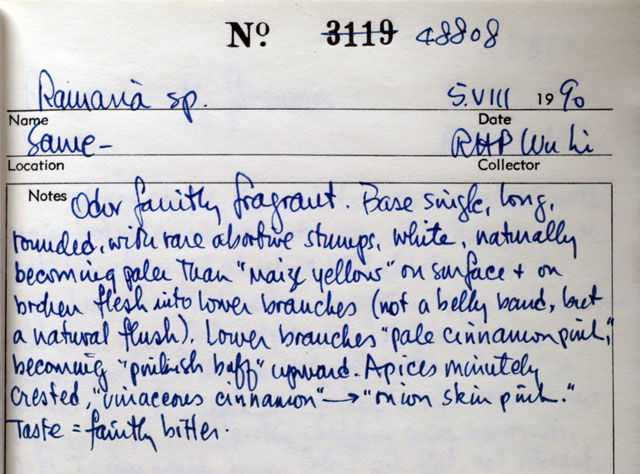 Nº 3119 48808
Ramaria sp. 5.VIII 1990
Name Date
Same- RHP Wu Li
Location Collector
Notes Odor faintly fragrant. Base single, long,
rounded, with rare abortive stumps, white, naturally
becoming paler than "maize yellow" on surface + on
broken flesh into lower branches (not a belly band, but
a natural flush). Lower branches "pale cinnamon pink,"
becoming "pinkish buff" upward. Apices minutely
crested, "vinaceous cinnamon" → "onion skin pink."
Taste = faintly bitter.